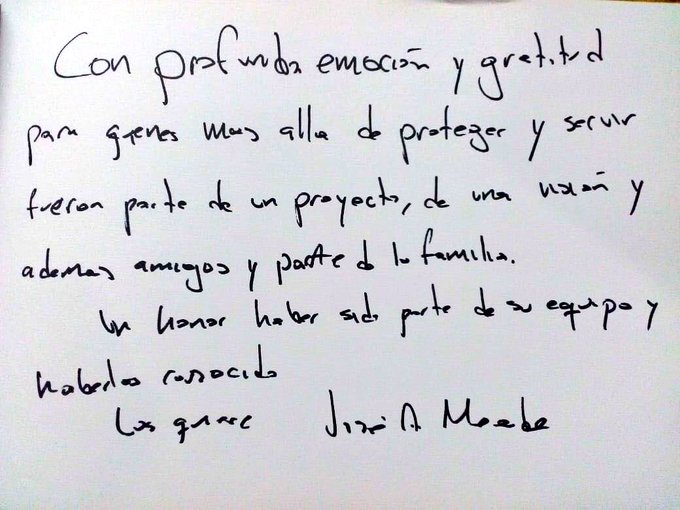 Con profunda emoción y gratitud
para quienes mas alla de proteger y servir
fueron parte de un proyecto, de una visión y
ademas amigos y parte de la familia.
Un honor haber sido parte de su equipo y
haberlos conocido
Los quiere José A Meade